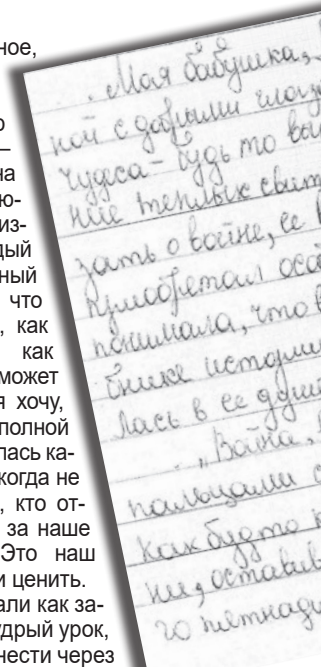 ное,
о
—
на
ю-
из-
дый
ный
что
, как
как
может
я хочу,
полной
лась ка-
когда не
, кто от-
за наше
Это наш
и ценить.
али как за-
удрый урок,
нести через
„Моя бабушка,
ной с добрыми глаза
чудеса – будь то вы
ние теплых свит
зать о войне, ее
приобретал осо
понимала, что в
бнике истории
лась в ее душе
„Война,
пальцами
как будто
ни, оставив
го пятнад